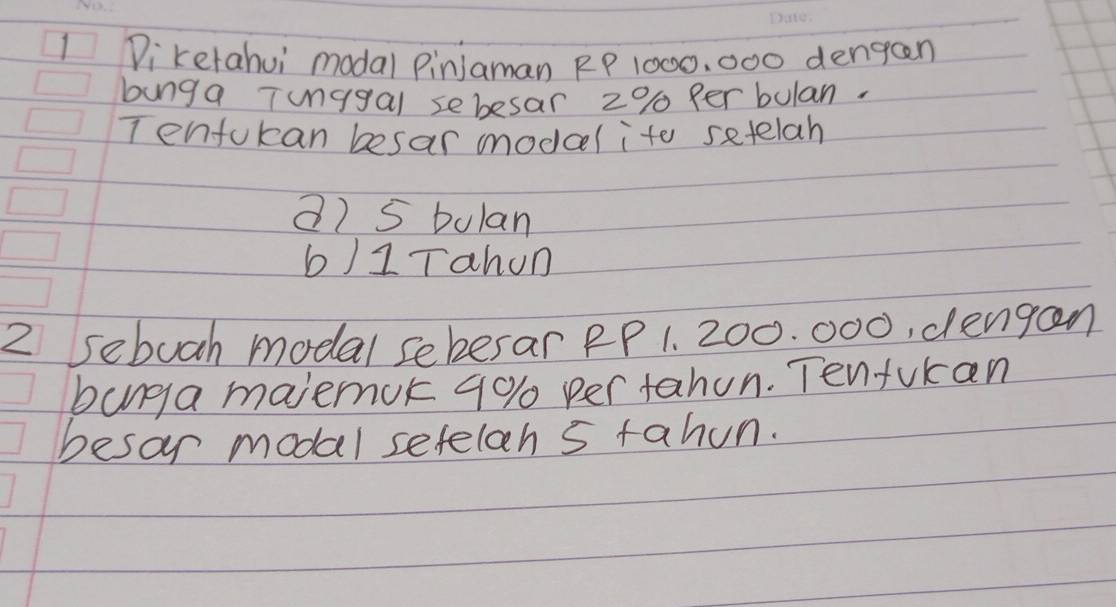 No.:
Date.
1 Diketahui modal Pinjaman RP 1000.000 dengan
bunga Tunggal sebesar 2% Per bulan.
Tentukan besar modal itu setelah
a) 5 bulan
b) 1 Tahun
2 sebuah modal sebesar RP 1.200.000, dengan
bunga majemuk 9% per tahun. Tentukan
besar modal setelah 5 tahun.